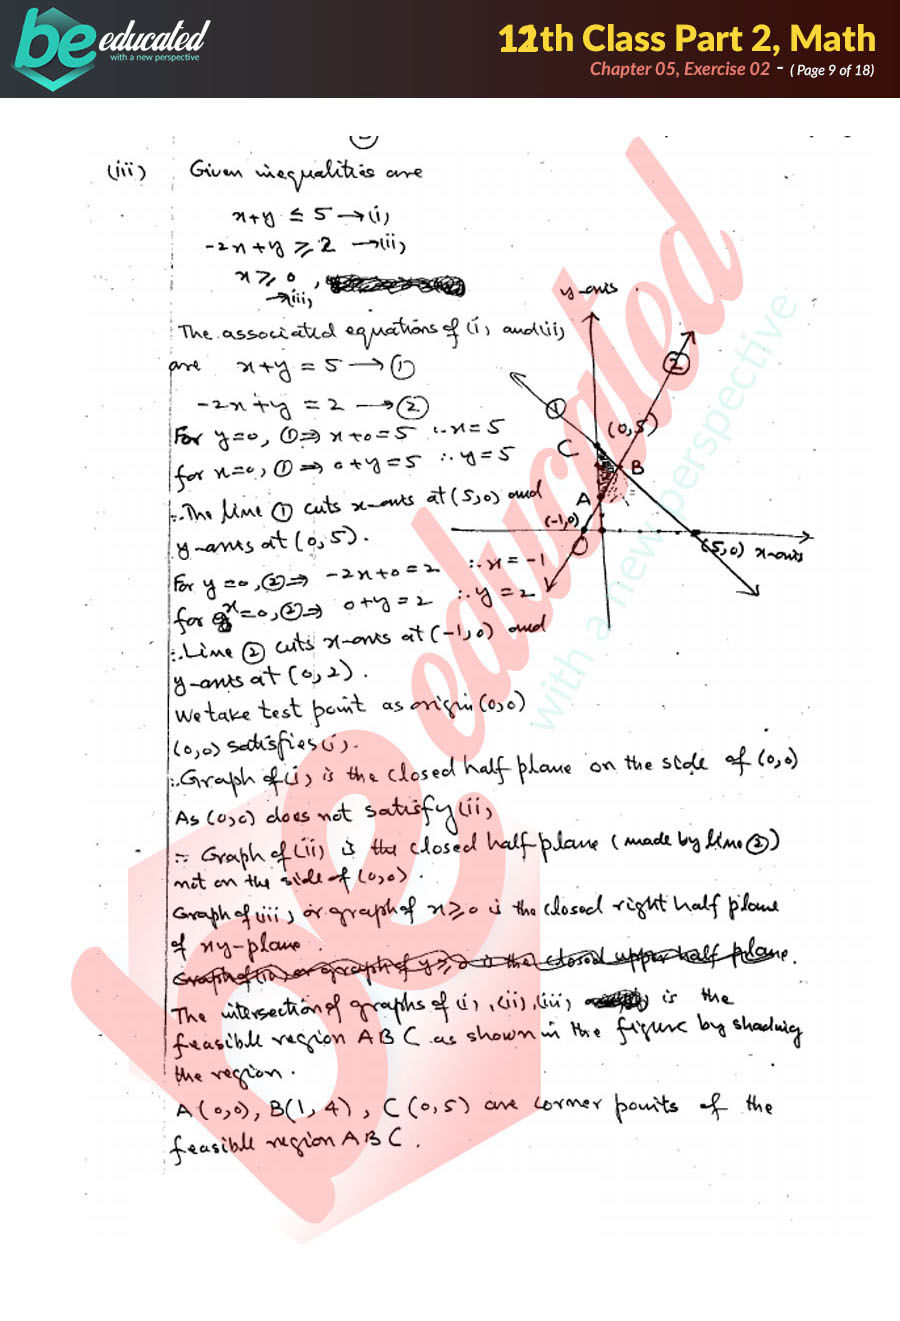 be educated
with a new perspective
12th Class Part 2, Math
Chapter 05, Exercise 02 - ( Page 9 of 18)
(iii) Given inequalities are
x+y ≤ 5 →(i)
-2x+y ≥ 2 →(ii)
x ≥ 0 ,
→(iii)
y-axis
The associated equations of (i) and (ii)
are x+y = 5 → ①
-2x+y = 2 → ②
For y=0, ①⇒ x+0=5 ∴x=5
for x=0, ① ⇒ 0+y=5 ∴ y=5
∴ The line ① cuts x-axis at (5,0) and
y-axis at (0,5).
For y=0, ②⇒ -2x+0=2 ∴x=-1
for x=0, ②⇒ 0+y=2 ∴y=2
∴Line ② cuts x-axis at (-1,0) and
y-axis at (0,2).
①
②
(0,5)
C
B
A
(-1,0)
O
(5,0) x-axis
We take test point as origin (0,0)
(0,0) satisfies (i).
∴Graph of (i) is the closed half plane on the side of (0,0)
As (0,0) does not satisfy (ii)
∴ Graph of (ii) is the closed half plane (made by line ②)
not on the side of (0,0).
Graph of (iii) or graph of x≥0 is the closed right half plane
of xy-plane.
Graph of (iv) or graph of y≥0 is the closed upper half plane.
The intersection of graphs of (i), (ii), (iii) is the
feasible region ABC as shown in the figure by shading
the region.
A(0,0), B(1,4), C(0,5) are corner points of the
feasible region ABC.
be educated
with a new perspective